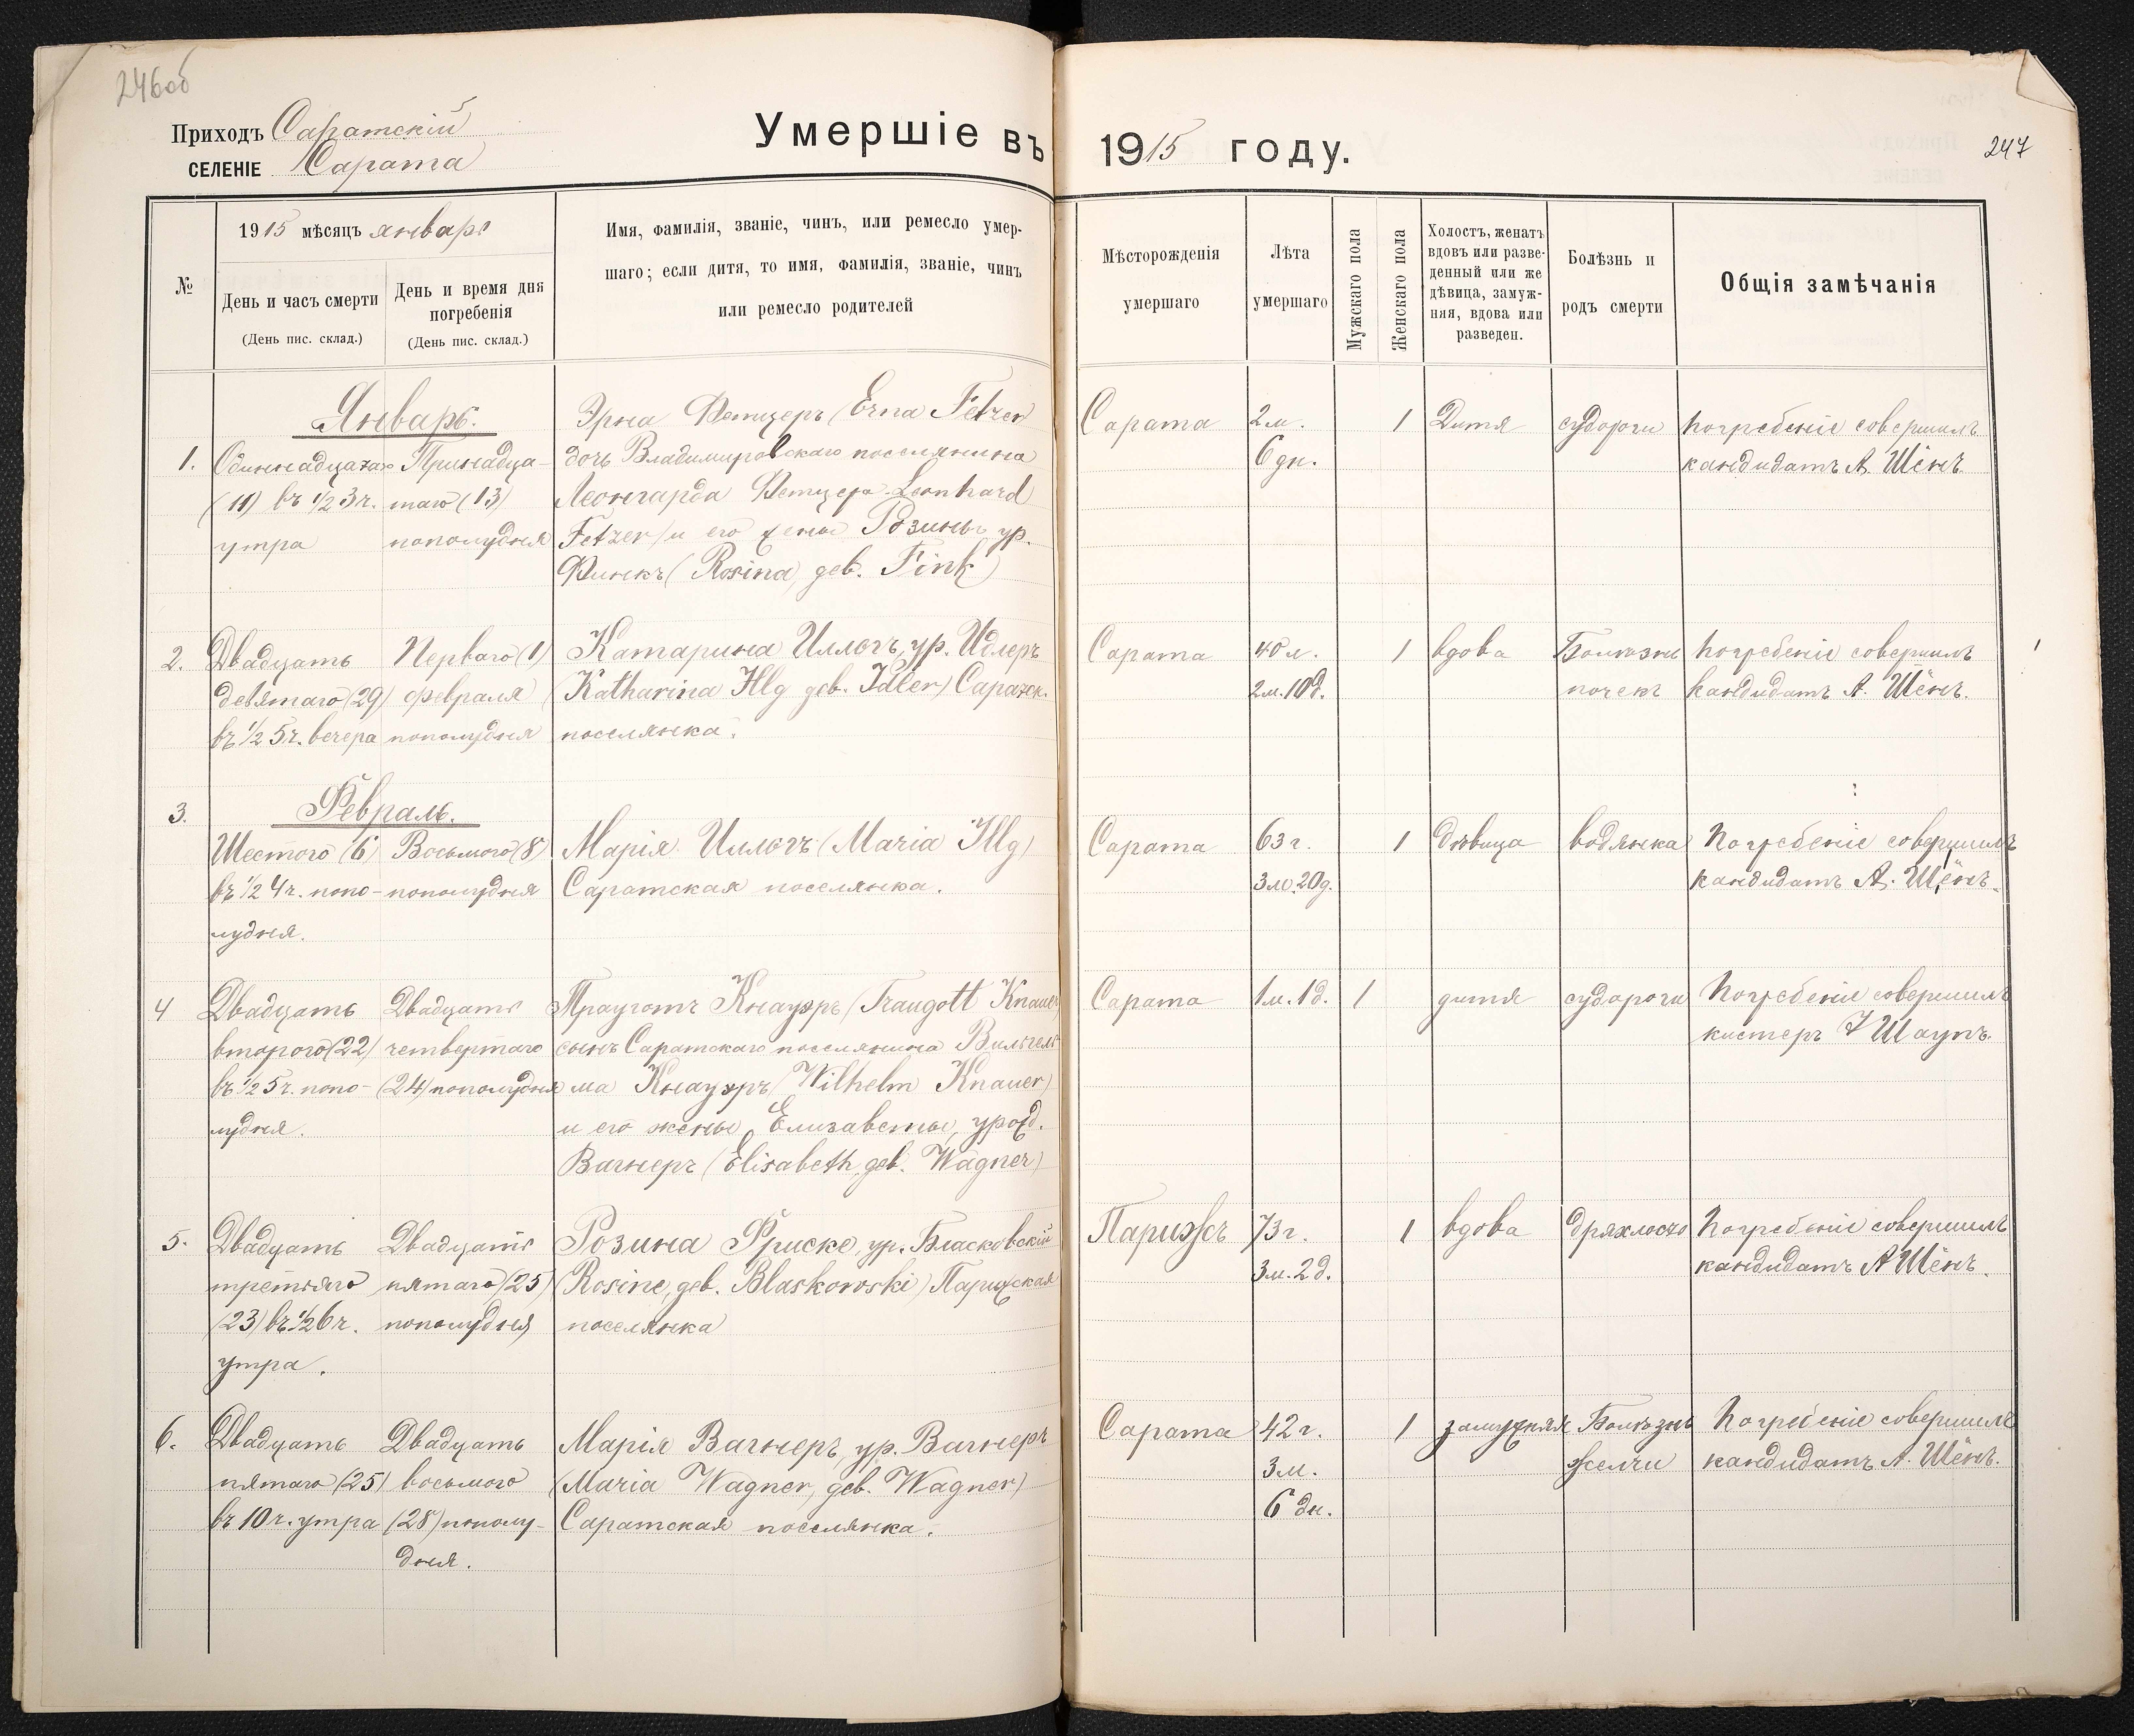 246об
Приходъ Саратскій
СЕЛЕНІЕ Сарата
Умершіе въ 1915 году.
247
№
1915 мѣсяцъ январь
День и часъ смерти
(День пис. склад.)
День и время дня
погребенія
(День пис. склад.)
Имя, фамилія, званіе, чинъ, или ремесло умер-
шаго; если дитя, то имя, фамилія, званіе, чинъ
или ремесло родителей
Мѣсторожденія
умершаго
Лѣта
умершаго
Мужскаго пола
Женскаго пола
Холостъ, женатъ
вдовъ или разве-
денный или же
дѣвица, замуж-
няя, вдова или
разведен.
Болѣзнь и
родъ смерти
Общія замѣчанія
Январь.
1.
Одиннадцатаго
(11) въ 1/2 3 ч.
утра
Тринадца-
таго (13)
пополудня
Эрна Фетцеръ (Erna Fetzer
дочь Владимировскаго поселянина
Леонгарда Фетцера Leonhard
Fetzer) и его жены Розины ур.
Финкъ (Rosina, geb. Fink)
Сарата
2 м.
6 дн.
1
Дитя
судороги
Погребеніе совершилъ
кандидатъ А. Шёнъ.
2.
Двадцать
девятаго (29)
въ 1/2 5 ч. вечера
Перваго (1)
февраля
пополудня
Катарина Иллгъ, ур. Идлеръ
(Katharina Illg geb. Idler) Саратск.
поселянка.
Сарата
40 л.
2 м. 10 д.
1
вдова
Болѣзнь
почекъ
Погребеніе совершилъ
кандидатъ А. Шёнъ.
Февраль.
3.
Шестого (6)
въ 1/2 4 ч. попо-
лудня.
Восьмого (8)
пополудня
Марія Иллгъ (Maria Illg)
Саратская поселянка.
Сарата
63 г.
3 м. 20 д.
1
дѣвица
водянка
Погребеніе совершилъ
кандидатъ А. Шёнъ.
4
Двадцать
второго (22)
въ 1/2 5 ч. попо-
лудня.
Двадцать
четвертаго
(24) пополудня
Трауготъ Кнауэръ (Traugott Knauer)
сынъ Саратскаго поселянина Вильгель-
ма Кнауэръ (Wilhelm Knauer)
и его жены Елизаветы, урожд.
Вагнеръ (Elisabeth, geb. Wagner)
Сарата
1 м. 1 д.
1
дитя
судороги
Погребеніе совершилъ
кистеръ Шаупъ.
5.
Двадцать
третьяго
(23) въ 1/2 6 ч.
утра.
Двадцать
пятаго (25)
пополудня
Розина Фриске, ур. Бласковскій
(Rosine, geb. Blaskowski) Парижская
поселянка
Парижъ
73 г.
3 м. 2 д.
1
вдова
дряхлость
Погребеніе совершилъ
кандидатъ А Шёнъ.
6.
Двадцать
пятаго (25)
въ 10 ч. утра
Двадцать
восьмого
(28) пополу-
дня.
Марія Вагнеръ, ур. Вагнеръ
(Maria Wagner, geb. Wagner)
Саратская поселянка.
Сарата
42 г.
3 м.
6 дн.
1
замужняя
Болѣзнь
желчи
Погребеніе совершилъ
кандидатъ А. Шёнъ.